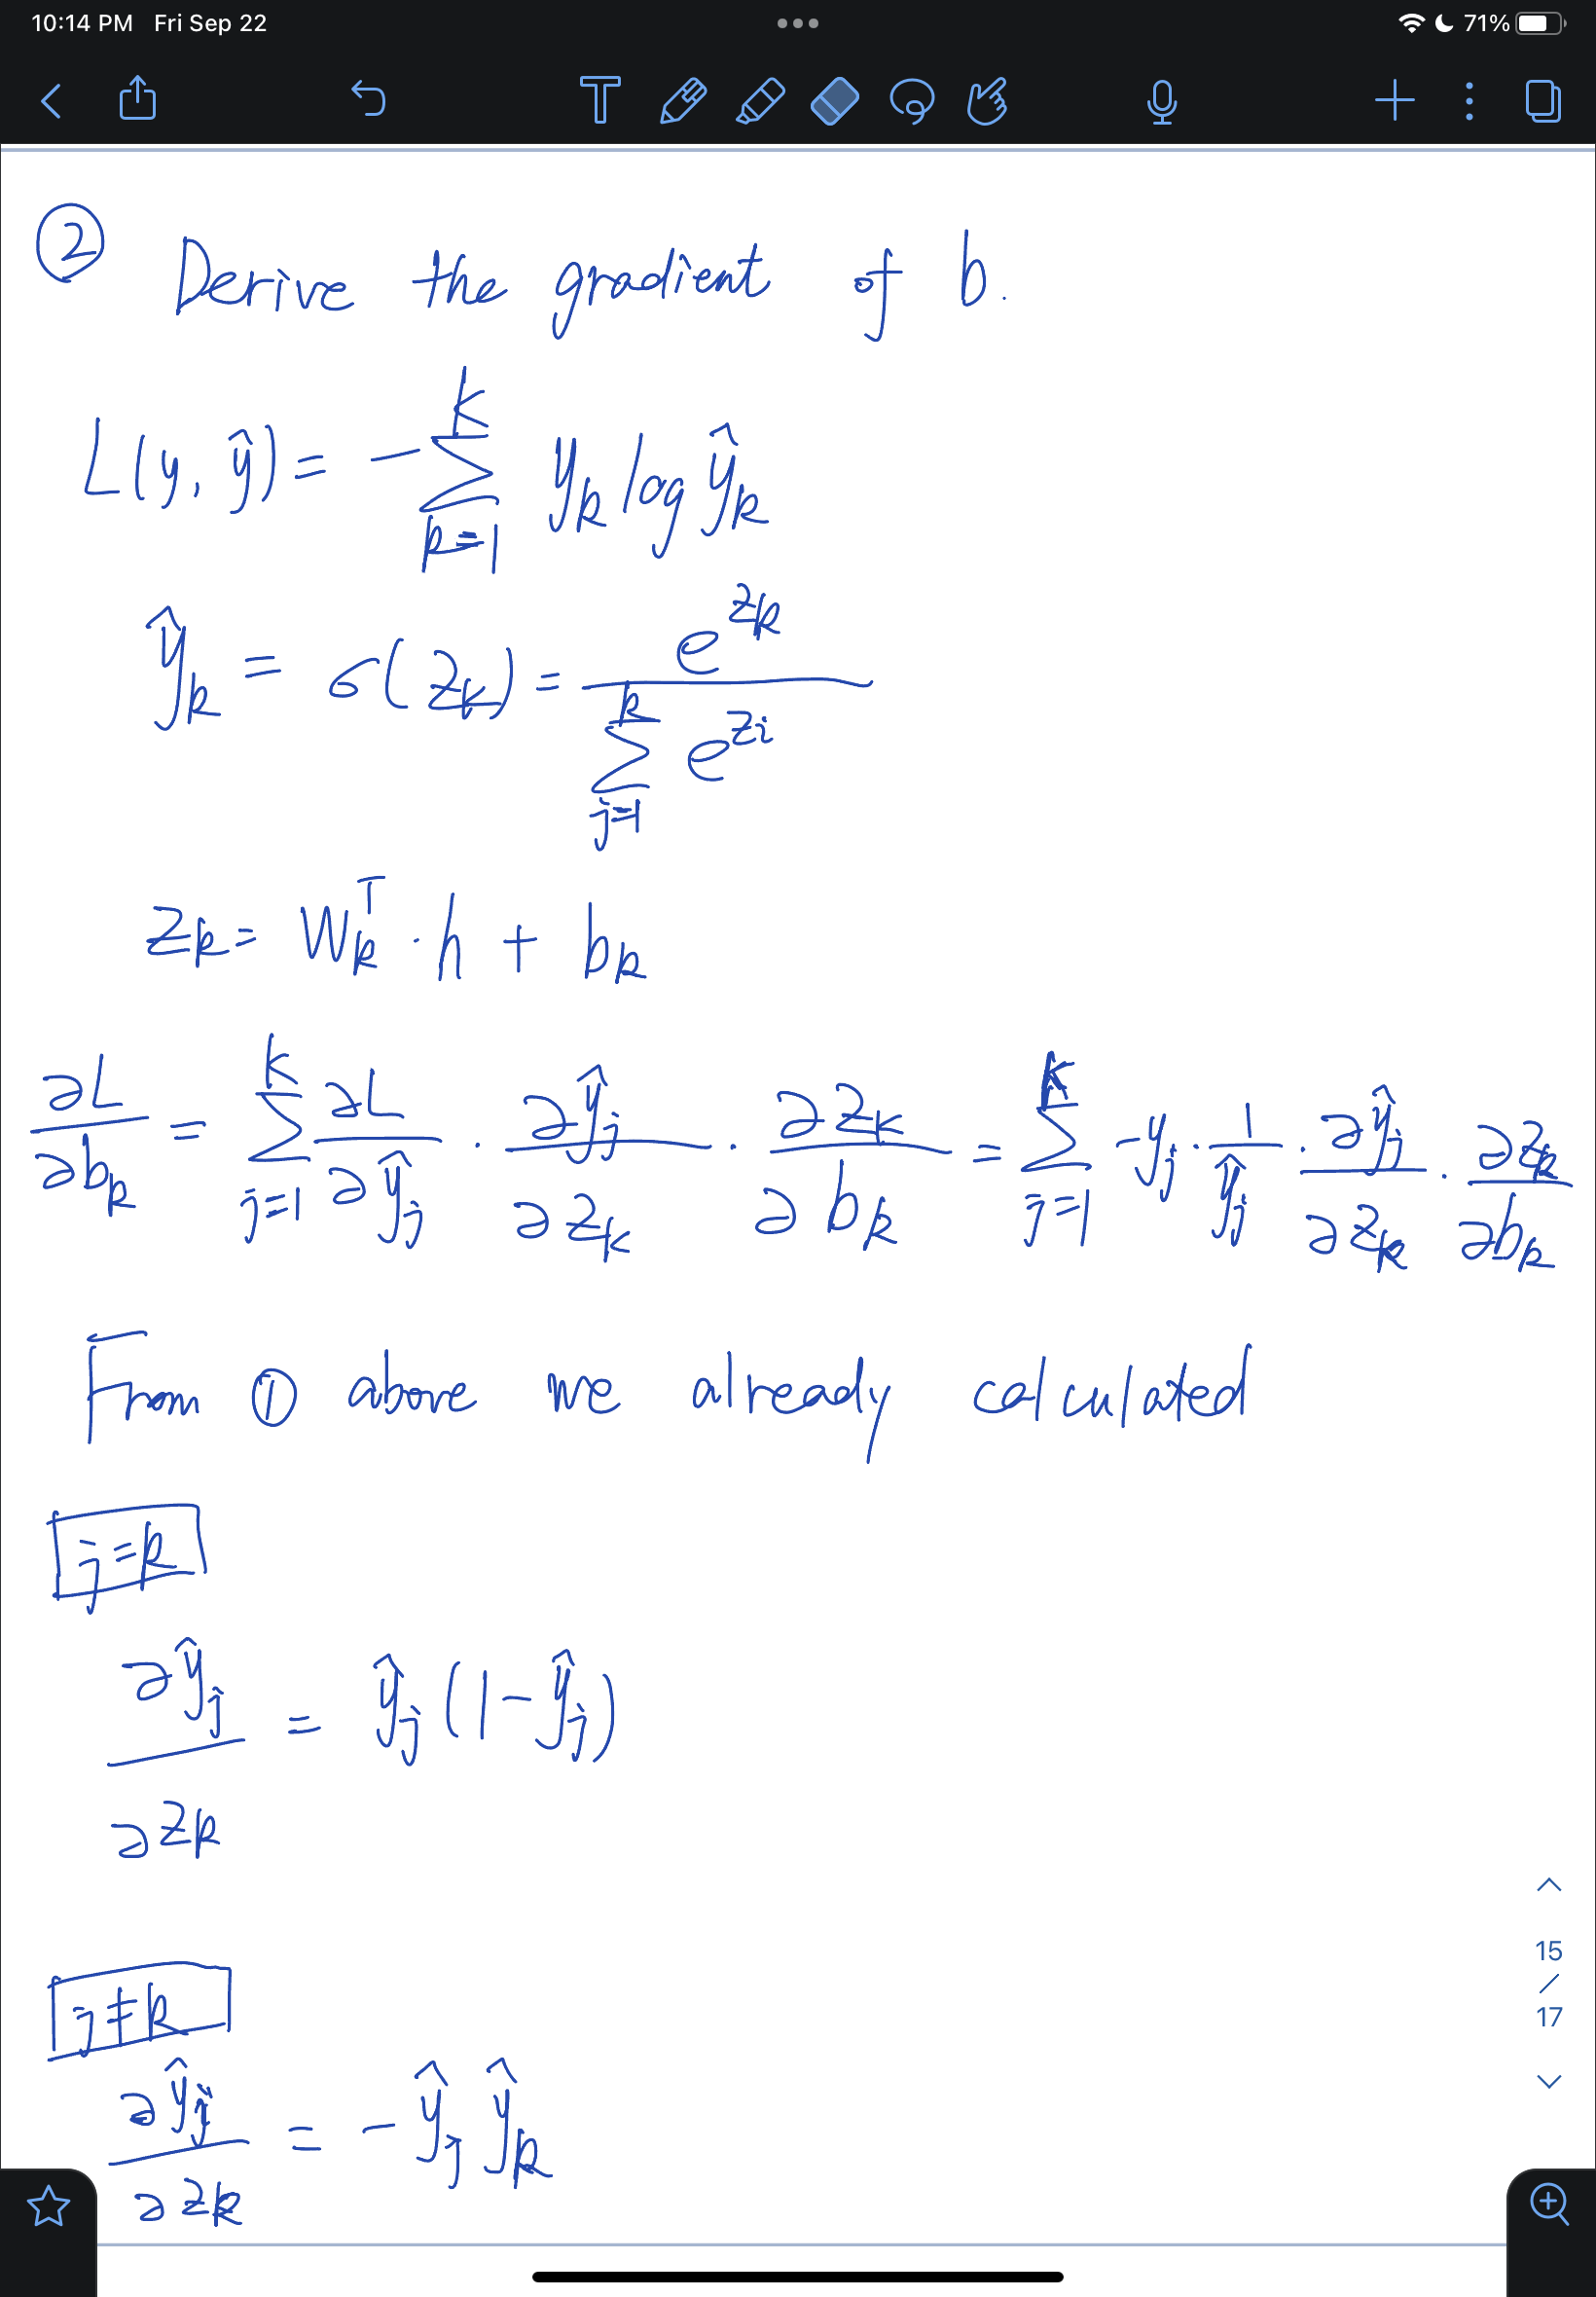 10:14 PM Fri Sep 22
71%
② Derive the gradient of b.
L(y, ŷ) = - ∑_{k=1}^{K} y_k log ŷ_k
ŷ_k = σ(z_k) = e^{z_k} / ∑_{j=1}^{k} e^{z_i}
z_k = W_k^T · h + b_k
∂L/∂b_k = ∑_{j=1}^{K} ∂L/∂ŷ_j · ∂ŷ_j/∂z_k · ∂z_k/∂b_k = ∑_{j=1}^{K} -y_j · 1/ŷ_j · ∂ŷ_j/∂z_k · ∂z_k/∂b_k
From ① above we already calculated
j=k
∂ŷ_j/∂z_k = ŷ_j (1-ŷ_j)
j≠k
∂ŷ_j/∂z_k = -ŷ_j ŷ_k
15
/
17